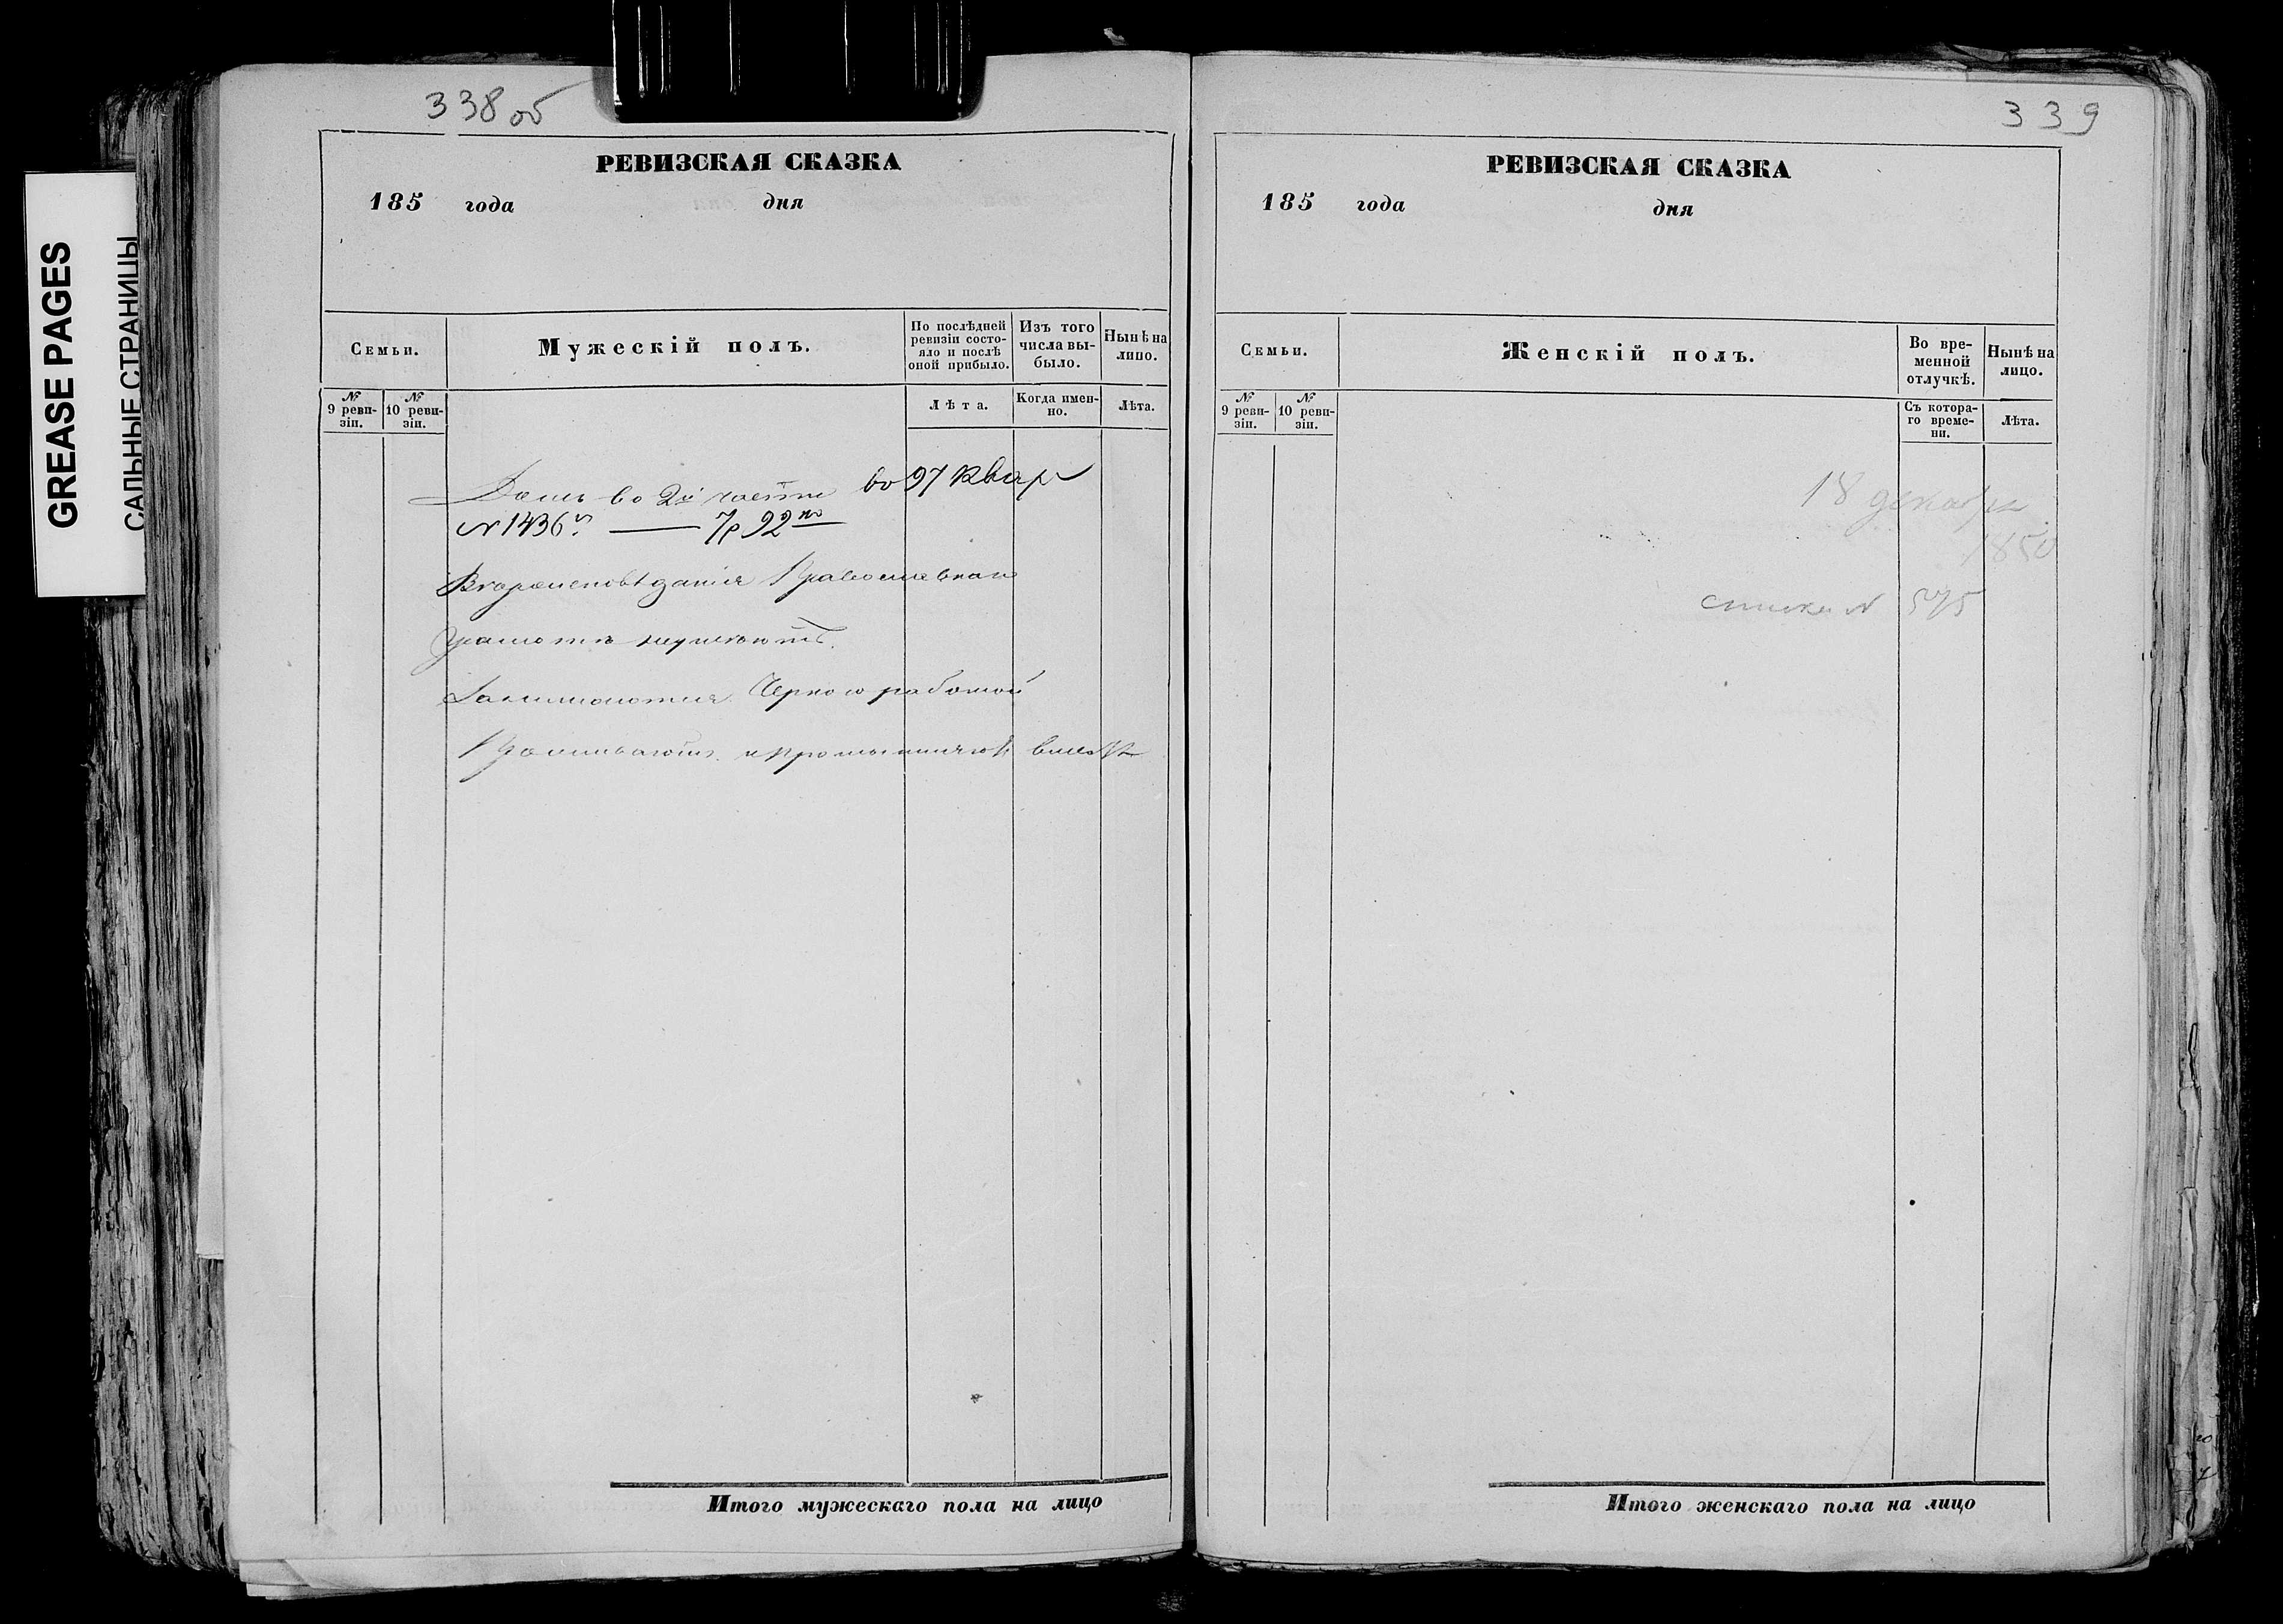 GREASE PAGES
САЛЬНЫЕ СТРАНИЦЫ
338 об
РЕВИЗСКАЯ СКАЗКА
185 года дня
Семьи.
Мужескій полъ.
По послѣдней ревизіи состо-
яло и послѣ
оной прибыло.
Изъ того
числа вы-
было.
Нынѣ на
лицо.
№
9 реви-
зіи.
№
10 реви-
зіи.
Лѣта.
Когда имен-
но.
Лѣта.
Домъ во 2й части во 97 квар
№ 1436 7р 92
Вѣроисповѣданія Православнаго
Грамотѣ неумѣютъ.
Занимаются Черною работой
вместѣ
Итого мужескаго пола на лицо
339
РЕВИЗСКАЯ СКАЗКА
185 года дня
Семьи.
Женскій полъ.
Во вре-
менной
отлучкѣ.
Нынѣ на
лицо.
№
9 реви-
зіи.
№
10 реви-
зіи.
Съ котора-
го време-
ни.
Лѣта.
18 декабря
1850
списка № 575
Итого женскаго пола на лицо